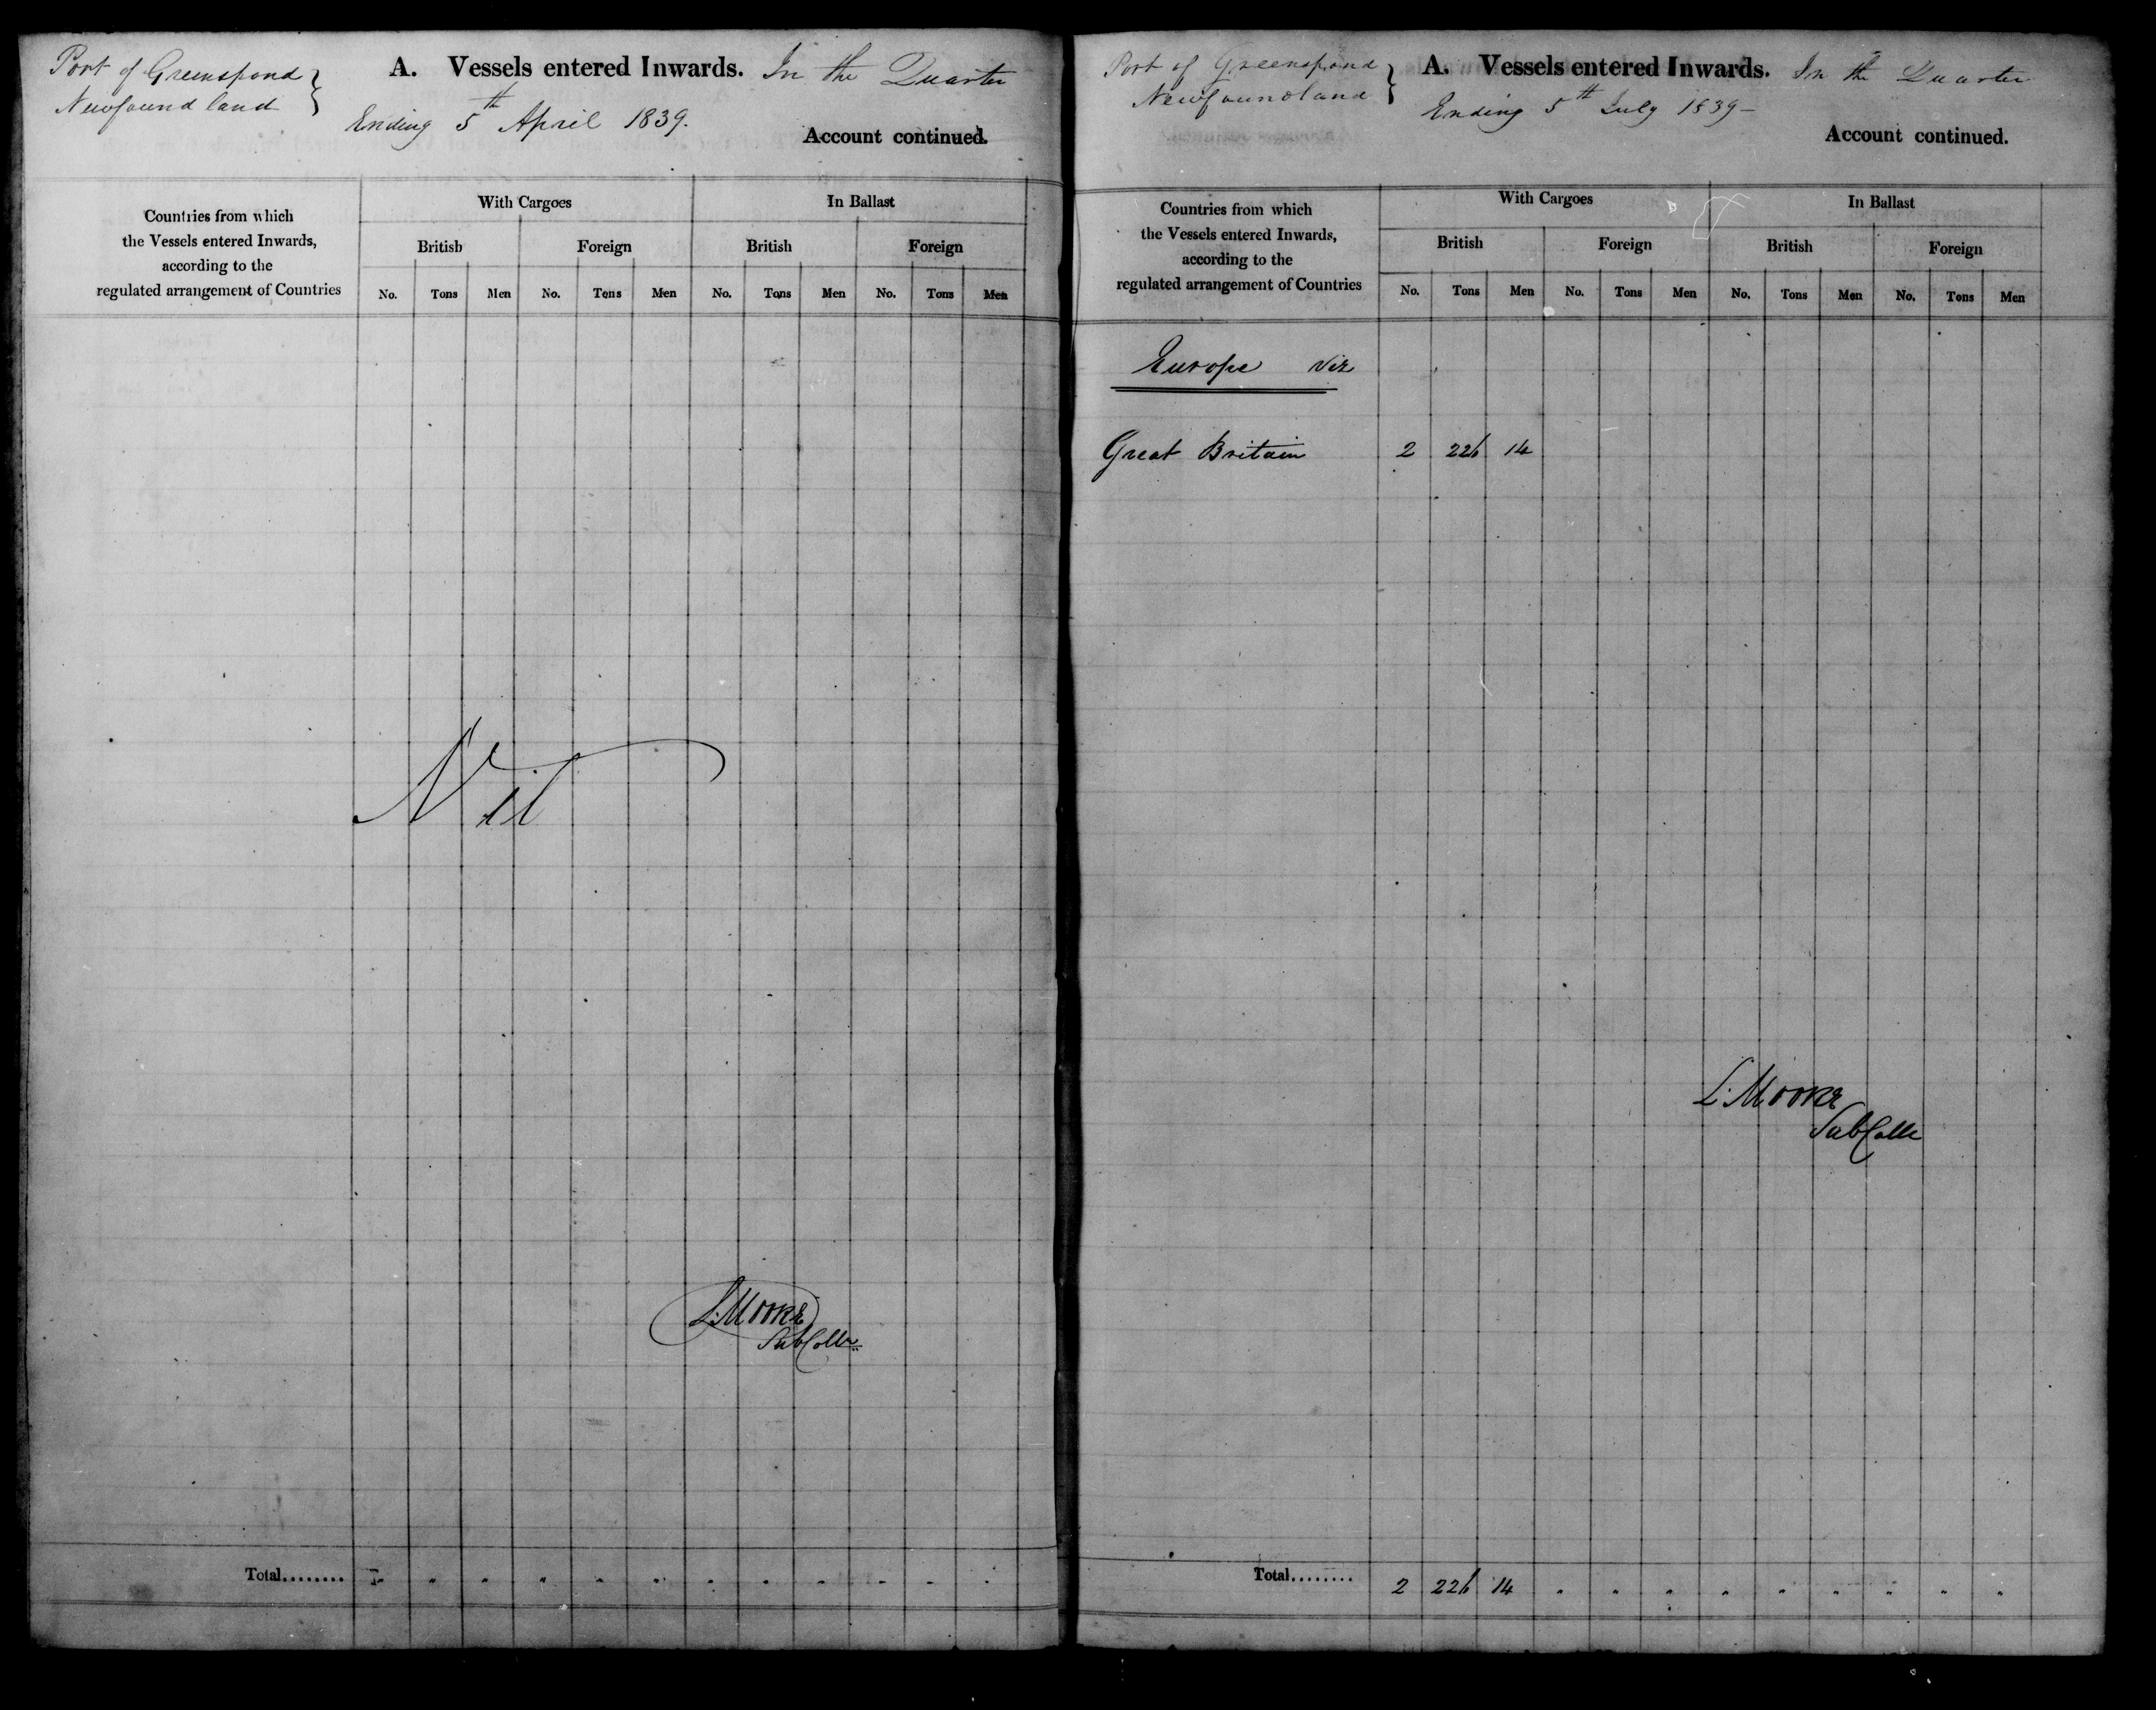 Port of Greenspond }
Newfoundland
A. Vessels entered Inwards. In the Quarter
Ending 5th April 1839.
Account continued.
Countries from which
the Vessels entered Inwards,
according to the
regulated arrangement of Countries
With Cargoes In Ballast
British Foreign British Foreign
No. Tons Men No. Tons Men No. Tons Men No. Tons Men
Nil
L. Moore
Sub Collr
Total........ " " " " " " " " " " " "
Port of Greenspond }
Newfoundland
A. Vessels entered Inwards. In the Quarter
Ending 5th July 1839 –
Account continued.
Countries from which
the Vessels entered Inwards,
according to the
regulated arrangement of Countries
With Cargoes In Ballast
British Foreign British Foreign
No. Tons Men No. Tons Men No. Tons Men No. Tons Men
Europe Viz
Great Britain 2 226 14
L. Moore
Sub Collr
Total........ 2 226 14 " " " " " " " " "